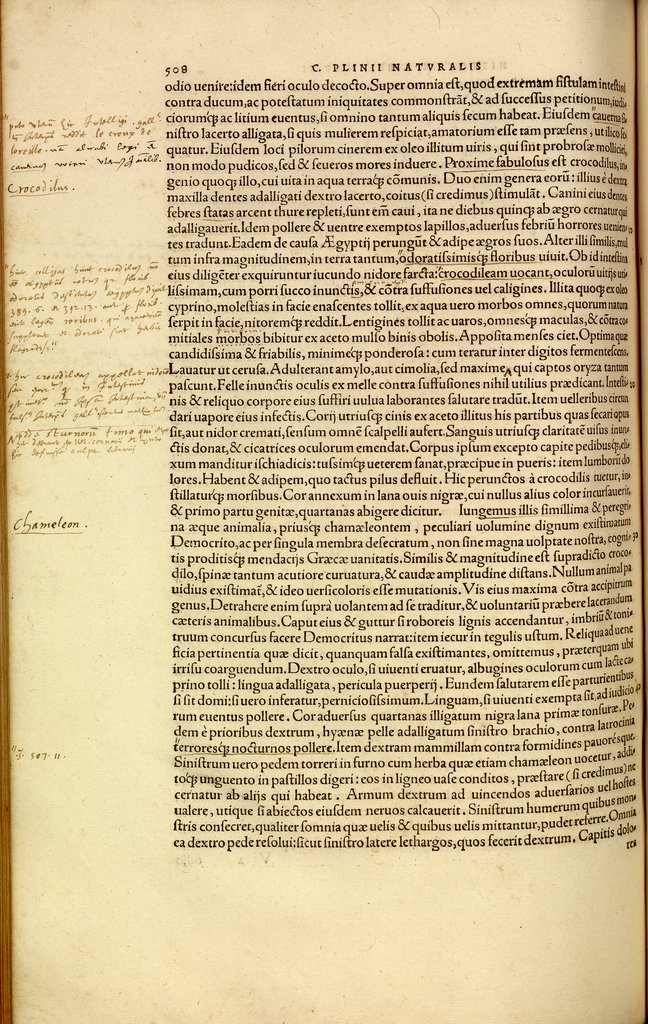 508
C. PLINII NATVRALIS
odio uenire: idem fieri oculo decocto. Super omnia est, quod extremam fistulam intestini
contra ducum, ac potestatum iniquitates commonstrāt, & ad successus petitionum, iudi
ciorumq́ue ac litium euentus, si omnino tantum aliquis secum habeat. Eiusdem cauerna si
nistro lacerto alligata, si quis mulierem respiciat, amatorium esse tam præsens, ut ilico se
quatur. Eiusdem loci pilorum cinerem ex oleo illitum uiris, qui sint probrosæ mollitiei,
non modo pudicos, sed & seueros mores induere. Proxime fabulosus est crocodilus, in
genio quoq; illo, cui uita in aqua terraq́; cōmunis. Duo enim genera eorū: illius è dextra
maxilla dentes adalligati dextro lacerto, coitus (si credimus) stimulāt. Canini eius dentes
febres statas arcent thure repleti, sunt em̄ caui, ita ne diebus quinq; ab ægro cernatur qui
adalligauerit. Idem pollere & uentre exemptos lapillos, aduersus febriū horrores uenien
tes tradunt. Eadem de causa Ægyptij perungūt & adipe ægros suos. Alter illi similis, mul
tum infra magnitudinem, in terra tantum, odoratissimisq́; floribus uiuit. Ob id intestina
eius diligēter exquiruntur iucundo nidore farcta: crocodileam uocant, oculorū uitijs uti
lissimam, cum porri succo inunctis, & cōtra suffusiones uel caligines. Illita quoq; ex oleo
cyprino, molestias in facie enascentes tollit, ex aqua uero morbos omnes, quorum natura
serpit in facie, nitoremq́; reddit. Lentigines tollit ac uaros, omnesq́; maculas, & cōtra co
mitiales morbos bibitur ex aceto mulso binis obolis. Apposita menses ciet. Optima quæ
candidissima & friabilis, minimeq́; ponderosa: cum teratur inter digitos fermentescens.
Lauatur ut cerusa. Adulterant amylo, aut cimolia, sed maxime qui captos oryza tantum
pascunt. Felle inunctis oculis ex melle contra suffusiones nihil utilius prædicant. Intesti
nis & reliquo corpore eius suffiri uulua laborantes salutare tradūt. Item uelleribus circun
dari uapore eius infectis. Corij utriusq; cinis ex aceto illitus his partibus quas secari opus
sit, aut nidor cremati, sensum omnē scalpelli aufert. Sanguis utriusq; claritatē uisus inun
ctis donat, & cicatrices oculorum emendat. Corpus ipsum excepto capite pedibusq́;, eli
xum manditur ischiadicis: tussimq́; ueterem sanat, præcipue in pueris: item lumborū do
lores. Habent & adipem, quo tactus pilus defluit. Hic perunctos à crocodilis tuetur, in
stillaturq́; morsibus. Cor annexum in lana ouis nigræ, cui nullus alius color incursauerit,
& primo partu genitæ, quartanas abigere dicitur. Iungemus illis simillima & peregri
na æque animalia, priusq́; chamæleontem, peculiari uolumine dignum existimatum
Democrito, ac per singula membra desecratum, non sine magna uolptate nostra, cogni
tis proditisq́; mendacijs Græcæ uanitatis. Similis & magnitudine est supradicto croco
dilo, spinæ tantum acutiore curuatura, & caudæ amplitudine distans. Nullum animal pa
uidius existimat̄, & ideo uersicoloris esse mutationis. Vis eius maxima cōtra accipitrum
genus. Detrahere enim supra uolantem ad se traditur, & uoluntariū præbere lacerandum
cæteris animalibus. Caput eius & guttur si roboreis lignis accendantur, imbriū & toni
truum concursus facere Democritus narrat: item iecur in tegulis ustum. Reliqua ad uene
ficia pertinentia quæ dicit, quanquam falsa existimantes, omittemus, præterquam ubi
irrisu coarguendum. Dextro oculo, si uiuenti eruatur, albugines oculorum cum lacte ca
prino tolli: lingua adalligata, pericula puerperij. Eundem salutarem esse parturientibus
si sit domi: si uero inferatur, perniciosissimum. Linguam, si uiuenti exempta sit, ad iudicio
rum euentus pollere. Cor aduersus quartanas illigatum nigra lana primæ tonsuræ. Pe
dem è prioribus dextrum, hyænæ pelle adalligatum sinistro brachio, contra latrocinia
terroresq́; nocturnos pollere. Item dextram mammillam contra formidines pauoresq́;.
Sinistrum uero pedem torreri in furno cum herba quæ etiam chamæleon uocetur, addi
toq́; unguento in pastillos digeri: eos in ligneo uase conditos, præstare (si credimus) ne
cernatur ab alijs qui habeat. Armum dextrum ad uincendos aduersarios uel hostes
ualere, utique si abiectos eiusdem neruos calcauerit. Sinistrum humerum quibus mon
stris consecret, qualiter somnia quæ uelis & quibus uelis mittantur, pudet referre. Omnia
ea dextro pede resolui: sicut sinistro latere lethargos, quos fecerit dextrum. Capitis dolo
res
Crocodilus.
Chameleon.
507. 11.